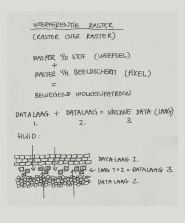 INTERFERENTIE RASTER
(RASTER OVER RASTER)
RASTER V/D STOF (WEEFSEL)
+
RASTER V/H BEELDSCHERM (PIXEL)
=
BEWEGEND WOLKENPATROON
DATALAAG + DATALAAG = NIEUWE DATA (LAAG)
1. 2. 3.
HUID:
DATALAAG 1.
LAAG 1+2 = DATALAAG 3.
DATALAAG 2.